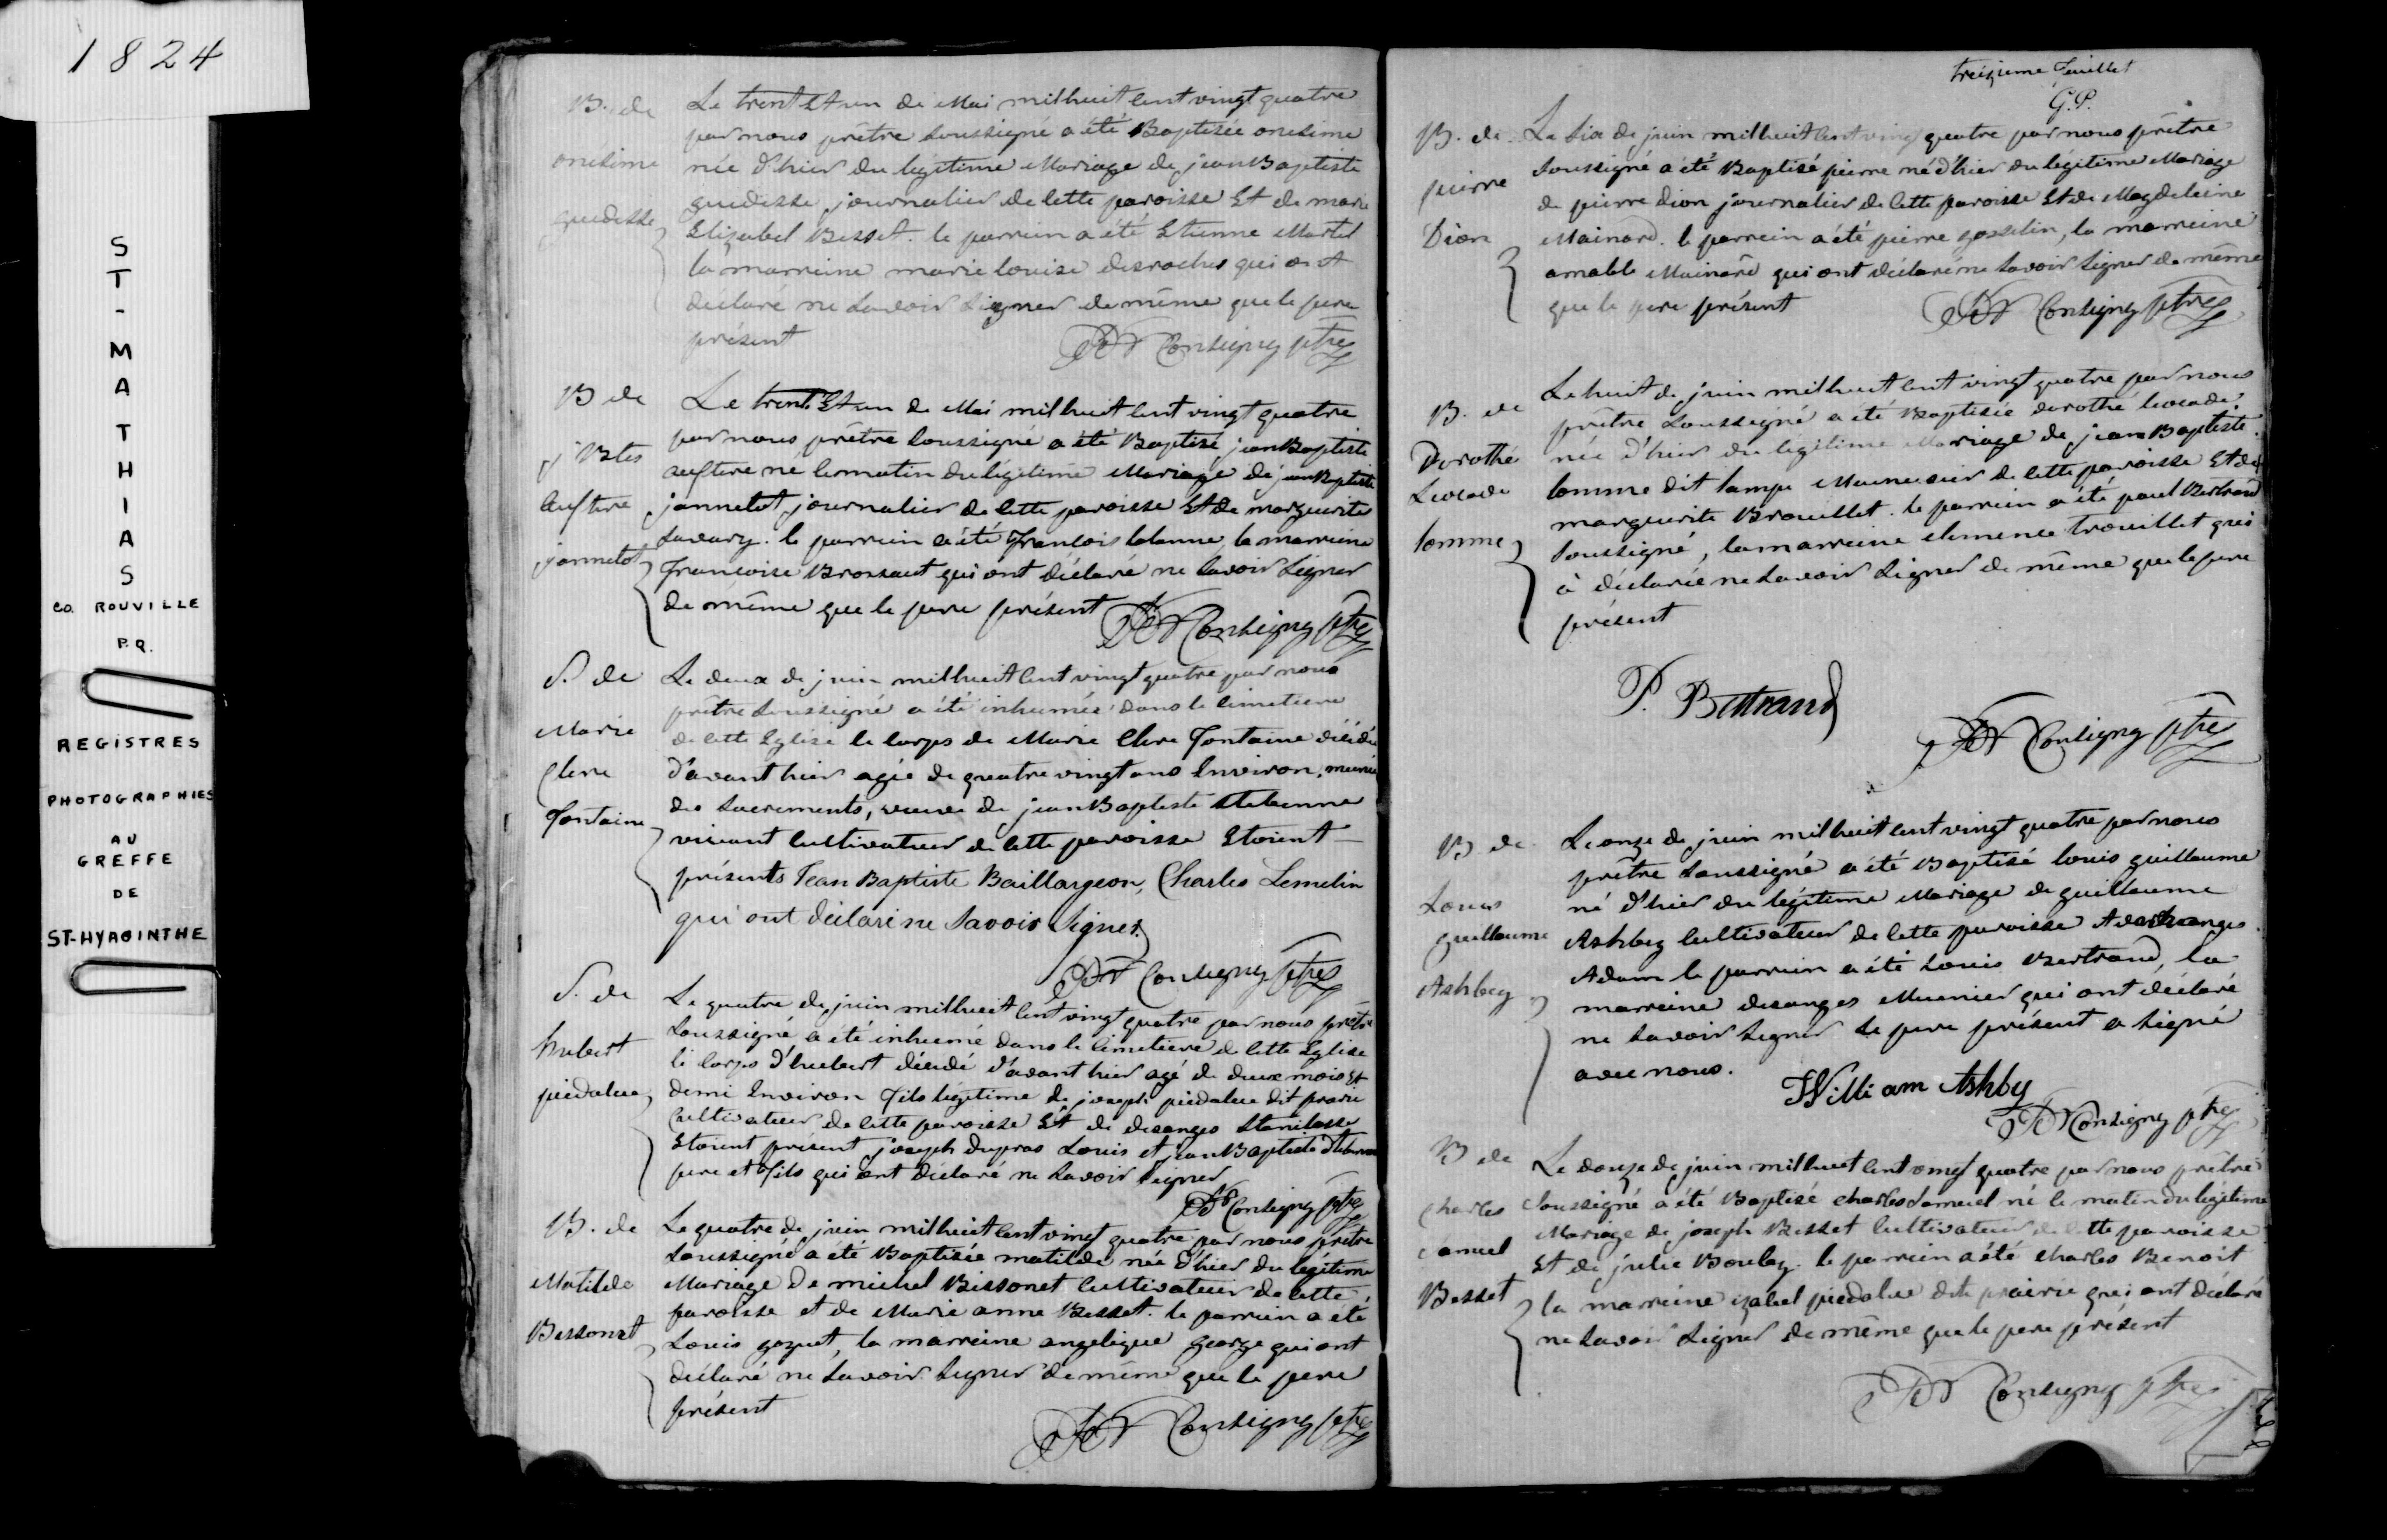 1824
ST-MATHIAS
CO. ROUVILLE
P.Q.
REGISTRES
PHOTOGRAPHIES
AU
GREFFE
DE
ST-HYACINTHE
B. de
onésime
guedesse
Le trent Et un de Mai mil huit cent vingt quatre
par nous prêtre soussigné a été Baptisée onésime
née d'hier du légitime Mariage de jean Baptiste
guedesse journalier de cette paroisse Et de marie
Elizabel Besset. le parrein a été Etienne Martel
la marreine marie louise desroches qui ont
déclaré ne savoir signer de même que le pere
présent
Consigny ptre
B de
j Btes
jannetot
Le trent Et un de Mai mil huit cent vingt quatre
par nous prêtre soussigné a été Baptisé jean Baptiste
né le matin du légitime Mariage de jean Baptiste
jannetot journalier de cette paroisse Et de marguerite
savary. le parrein a été François lalanne la marreine
Françoise Brossaut qui ont déclaré ne savoir signer
de même que le pere présent
Consigny ptre
S. de
Marie
Clere
Fontaine
Le deux de juin mil huit cent vingt quatre par nous
prêtre soussigné a été inhumée dans le cimetiere
de cette Eglise le corps de Marie Clere Fontaine décédée
d'avant hier agée de quatre vingt ans Environ, munie
des sacrements, veuve de jean Baptiste
vivant cultivateur de cette paroisse Etoient
présents Jean Baptiste Baillargeon, Charles Lemelin
qui ont déclaré ne Savoir Signer.
Consigny ptre
S. de
hubert
piedalue
Le quatre de juin mil huit cent vingt quatre par nous prêtre
soussigné a été inhumé dans le cimetiere de cette Eglise
le corps d'hubert décédé d'avant hier agé de deux mois Et
demi Environ Fils légitime de joseph piedalue dit prairie
Cultivateur de cette paroisse Et de desanges
Etoient présent joseph dupras Louis et jean Baptiste
pere et Fils qui ont déclaré ne savoir signer
Consigny ptre
B. de
Matilde
Bessonet
Le quatre de juin mil huit cent vingt quatre par nous prêtre
soussigné a été Baptisée matilde née d'hier du légitime
Mariage de michel Bissonet Cultivateur de cette
paroisse et de Marie anne Besset. le parrein a été
Louis gozuet, la marreine angelique george qui ont
déclaré ne savoir signer de même que le pere
présent
Consigny ptre
treizieme Feuillet
G.P.
B. de
pierre
Dion
Le six de juin mil huit cent vingt quatre par nous prêtre
soussigné a été Baptisé pierre né d'hier du légitime Mariage
de pierre dion journalier de cette paroisse Et de Magdeleine
Mainard. le parrein a été pierre gosselin, la marreine
amable Mainard qui ont déclaré ne savoir signer de même
que le pere présent
Consigny ptre
B. de
Dorothé
Leocade
Comme
Le huit de juin mil huit cent vingt quatre par nous
prêtre soussigné a été Baptisée dorothé leocade
née d'hier du légitime Mariage de jean Baptiste
Comme dit de cette paroisse Et de
marguerite Brouillet. le parrein a été paul Bertrand
soussigné, la marreine clemence trouillet qui
a déclarée ne savoir signer de même que le pere
présent
P. Bertrand
Consigny ptre
B. de
Louis
guillaume
Ashbey
Le onze de juin mil huit cent vingt quatre par nous
prêtre soussigné a été Baptisé louis guillaume
né d'hier du légitime Mariage de guillaume
Ashbey Cultivateur de cette paroisse
Adam le parrein a été Louis Bertrand, la
marreine desanges Meunier qui ont déclaré
ne savoir signer Le pere présent a signé
avec nous.
William Ashby
Consigny ptre
B de
Charles
Samuel
Besset
Le douze de juin mil huit cent vingt quatre par nous prêtre
soussigné a été Baptisé charles Samuel né le matin du légitime
Mariage de joseph Besset Cultivateur de cette paroisse
Et de julie Bouley. le parrein a été charles Benoit
la marreine izabel piedalue dit prairie qui ont déclaré
ne savoir signer de même que le pere présent
Consigny ptre